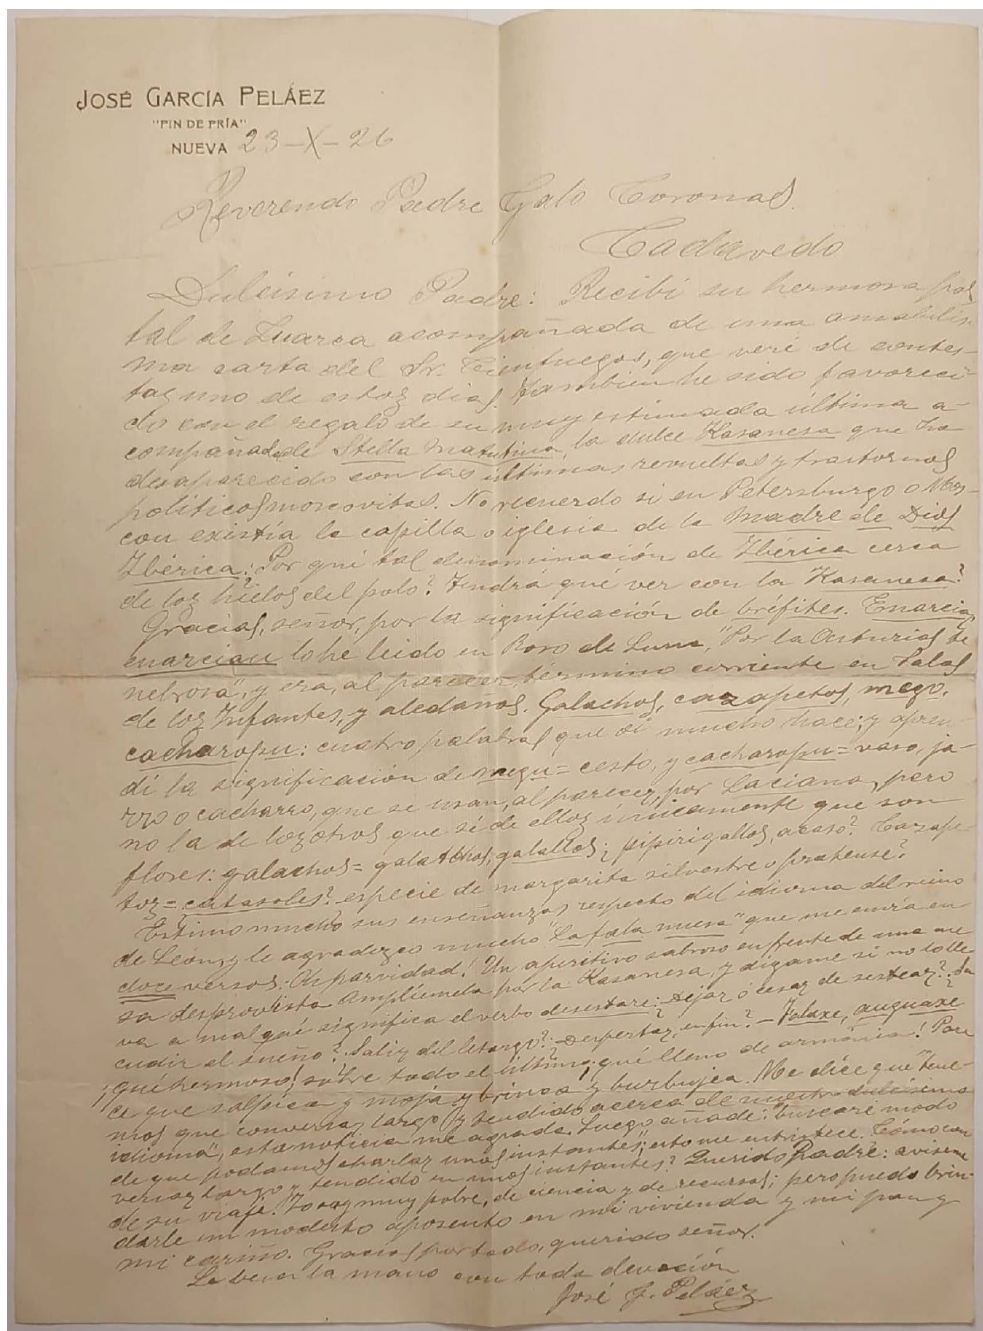 JOSÉ GARCÍA PELÁEZ
"PIN DE PRÍA"
NUEVA 23-X-26
Reverendo Padre Galo Coronas.
Cadavedo
Dulcísimo Padre: Recibí su hermosa pos
tal de Luarca acompañada de una amabilísi-
ma carta del Sr. Cienfuegos, que veré de contes-
tar uno de estos días. También he sido favoreci-
do con el regalo de su muy estimada última a-
compañada de Stella matutina, la dulce Kasanesa que ha
desaparecido con las últimas revueltas y trastornos
políticos moscovitas. No recuerdo si en Petersburgo o Mos-
cou existía la capilla o iglesia de la Madre de Dios
Ibérica: Por qué tal denominación de Ibérica cerca
de los hielos del polo? Tendrá qué ver con la "Kasanesa?
Gracias, señor, por la significación de bréfites. Enarcia,
enarciau lo he leido en Roso de Luna, "Por la Asturias te
nebrosa", y era, al parecer, término corriente en Salas
de los Infantes, y aledaños. Galachos, cazapetos, mego,
cacharopu: cuatro palabras que oí mucho hace; y apren-
dí la significación de megu = cesto, y cacharopu = vaso, ja-
rro o cacharro, que se usan, al parecer, por Laciana, pero
no la de los otros que sé de ellos únicamente que son
flores: galachos = galatchos, galallos; pipirigallos, acaso? Cazape-
tos = catasoles? especie de margarita silvestre o pratense?
Estimo mucho sus enseñanzas respecto del idioma del reino
de León, y le agradezco mucho "La fala nuesa" que me envía en
doce versos. Qué parvidad! Un aperitivo sabroso en frente de una me
sa desprovista. Amplíemela por la Kasanesa, y dígame si no lo lle
va a mal qué significa el verbo desestare: dejar o cesar de sestear? Sa
cudir el sueño? Salir del letargo? Despertar, en fin? — Falaxe, auguaxe
¡qué hermosos! sobre todo el último; qué lleno de armonía! Pare
ce que salpica y moja y brinca y burbujea. Me dice que "tene-
mos que conversar largo y tendido acerca de nuestro dulcísimo
idioma", esta noticia me agrada. Luego añade: "buscaré modo
de que podamos charlar unos instantes"; esto me entristece. Cómo con
versar largo y tendido en unos instantes? Querido Padre: avíseme
de su viaje. Yo soy muy pobre, de ciencia y de recursos; pero puedo brin-
darle un modesto aposento en mi vivienda y mi pan y
mi cariño. Gracias por todo, querido señor.
Le besa la mano con toda devoción
José G. Peláez